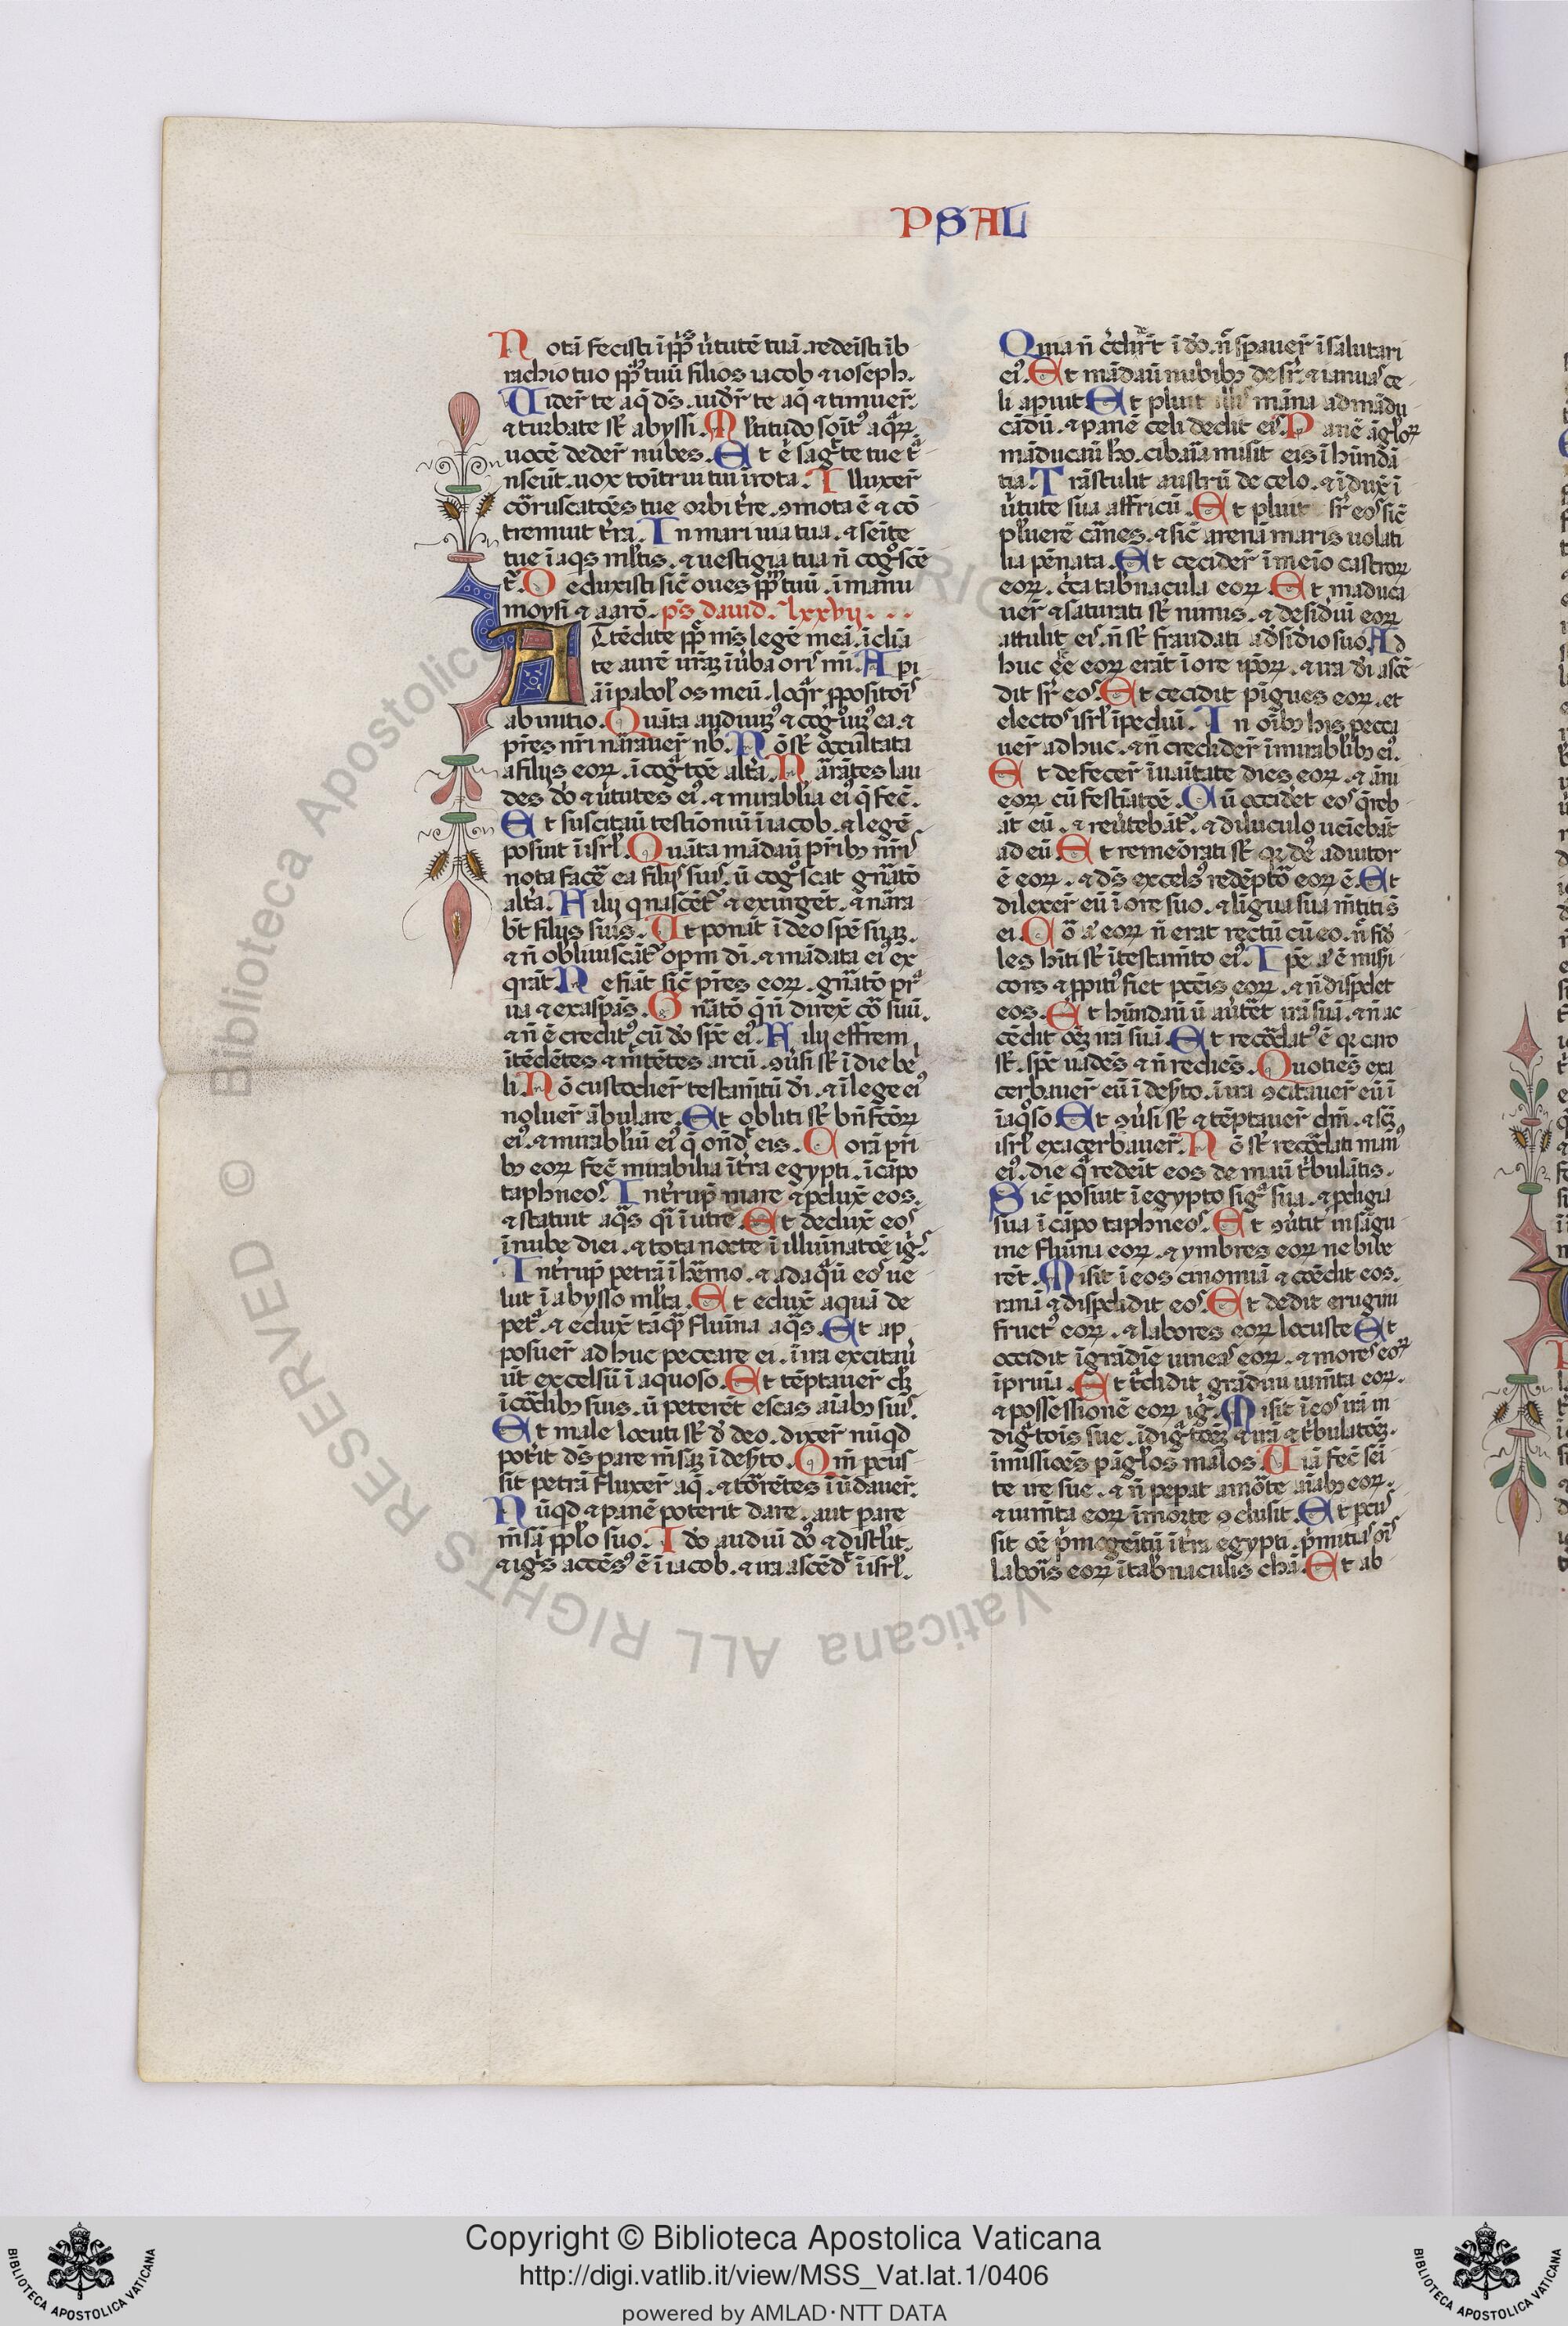 PSAL
Notā fecisti ī ppłis ũtutē tuā. redeīsti ī b
rachio tuo ppłm tuū filios iacob ⁊ ioseph.
Uider̄ te aq̄ ds̄. uider̄ te aq̄ ⁊ timuer̄.
⁊ turbate st̄ abyssi. Mltitudo soītꝰ aqꝝ
uocē deder̄ nubes. Et ē sagr̄te tue tr̄a
nseūt. uox toītrui tui ī rota. Illuxer̄
cōruscatōes tue orbi t̄re. ɔmota ē ⁊ cō
tremuit t̄ra. In mari uia tua. ⁊ seīte
tue ī aqs m̄ltis. ⁊ uestigia tua n̄ cogͦscē
t̄. Deduxisti sic̄ oues ppłm tuū. ī manu
moysi ⁊ aarō. ps̄ dauid. lxxvij.
Attēdite ppłe ms̄ legē meā. īclīa
te aurē ur̄aꝫ ī ũba oris mī. Api
ā ī pabol̓ os meū. loq̄r ppositois
ab initio. Quāta audiuīꝰ ⁊ cogͦuīꝰ ea. ⁊
pr̄es nr̄i narrauer̄ nb̄. Nō st̄ occultata
a filijs eoꝝ. ī cogͣtōe alt̄a. Narrātes lau
des dō ⁊ ũtutes eiꝰ. ⁊ mirabłia eiꝰ q̄ fec̄.
Et suscitau̓ testīoniū ī iacob. ⁊ legē
posuit ī isrł. Quāta mādau̓ prībꝫ nr̄is
nota facē ea filijs suis. ũ cogͦscat gn̄atō
alt̄a. Filij q̓ nascēt̄ ⁊ exurgēt. ⁊ narra
bt̄ filijs suis. Ut ponāt ī deo spē suaꝫ.
⁊ n̄ obliuiscāt̄ opm̄ dī. ⁊ mādata eiꝰ ex
qrāt. Ne fiāt sic̄ pr̄es eoꝝ. gn̄atō pr̄
ua ⁊ exaspās. Gn̄atō q̄ n̄ direx̄ cō suū.
⁊ n̄ ē creditꝰ cū dō sp̄c eiꝰ. Filij effrem
ītēdētes ⁊ mittētes arcū. ɔũsi st̄ ī die be
li. Nō custodier̄ testam̄tū dī. ⁊ ī lege eiꝰ
noluer̄ ābulare. Et obliti st̄ bn̄fc̄oꝝ
eiꝰ. ⁊ mirabłiū eiꝰ q̄ ond̄it eis. Corā pr̄i
bꝫ eoꝝ fec̄ mirabilia ī t̄ra egypti. ī cāpo
taphneos. Int̄rup̄ mare ⁊ pdux̄ eos.
⁊ statuit aqͣs q̄i ī utre. Et dedux̄ eos
ī nube diei. ⁊ tota nocte ī illuīnatōe igͥs.
Int̄rup̄ petrā ī h̄emo. ⁊ adaqͣū eos ue
lut ī abysso m̄lta. Et edux̄ aquā de
petͣ. ⁊ edux̄ tāq̄ fluīna aqͣs. Et ap
posuer̄ ad huc peccare ei. ī ira excitau̓
ūt excelsū ī aquoso. Et tēptauer̄ dꝫ
ī cordibꝫ suis. ũ peterēt escas aīabꝫ suis.
Et male locuti st̄ d̄ deo. dixer̄ nūqd
pot̄it ds̄ pare m̄saꝫ ī deſto. Qm̄ pcus
sit petrā ⁊ fluxer̄ aq̄. ⁊ torrētes īūdauer̄.
Nūqd ⁊ panē poterit dare. aut pare
m̄sā ppło suo. Ido audiui dō ⁊ distłit.
⁊ igͥs accēsꝰ ē ī iacob. ⁊ ira ascēdͥ ī isrł.
Quia n̄ crediderūt ī dō. n̄ spauer̄ ī salutari
eiꝰ. Et mādau̓ nubibꝫ desr̄. ⁊ ianuas ce
li apuit. Et pluit māna ad mādu
cādū. ⁊ panē celi dedit eis. Panē āgłoꝝ
māducau̓ ho. cibaria misit eis ī hūndā
tia. Trāstulit austrū de celo. ⁊ īdux̄ ī
ũtute sua affricū. Et pluit sr̄ eos sic̄
płuerē carnes. ⁊ sic̄ arenā maris uolati
lia pēnata. Et cecider̄ ī meīo castroꝝ
eoꝝ. c̄ca tab̄nacula eoꝝ. Et māduca
uer̄ ⁊ saturati st̄ nimis. ⁊ desidiū eoꝝ
attulit eis. n̄ st̄ fraudati a dsidio suo. Ad
huc escē eoꝝ erāt ī ore ipoꝝ. ⁊ ira dī ascē
dit sr̄ eos. Et occidit pīgues eoꝝ. et
electos isrł īpediui̓. In oībꝫ his pecca
uer̄ ad huc. ⁊ n̄ credider̄ ī mirabłibꝫ eiꝰ.
Et defecer̄ ī uaītate dies eoꝝ. ⁊ āni
eoꝝ cū festīatōe. Cū occidet eos q̄reb
āt eū. ⁊ reũtebāt̄. ⁊ diluculo ueīebāt
ad eū. Et rememorati st̄ qꝛ deꝰ adiutor
ē eoꝝ. ⁊ ds̄ excelsꝰ redēptō eoꝝ ē. Et
dilexer̄ eū ī ore suo. ⁊ līgua sua m̄titi s̄
ei. Cō aͣ eoꝝ n̄ erat rectū cū eo. n̄ fid
les hīti st̄ ī testam̄to eiꝰ. Ipe aͣ ē misi
cors ⁊ ppitiꝰ fiet pctīs eoꝝ. ⁊ n̄ dispdet
eos. Et hūndau̓ ũ aũtēt irā suā. ⁊ n̄ ac
cēdit oēꝫ irā suā. Et recordatꝰ ē qꝛ caro
st̄. spc̄ uadēs ⁊ n̄ rediēs. Quoties exa
cerbauer̄ eū ī desto. ī ira ɔcitauer̄ eū ī
ī aqͦso. Et ɔũsi st̄ ⁊ tēptauer̄ dm̄. ⁊ scꝫ
isrł exacerbauer̄. Nō st̄ recordati manꝰ
eiꝰ. die qͣ redeīt eos de manu t̄bulātis.
Sic̄ posuit ī egypto sigͣ sua. ⁊ pdigia
sua ī cāpo taphneos. Et ɔũtit ī sāgu
ine fluīna eoꝝ. ⁊ ymbres eoꝝ ne bibe
rēt. Misit ī eos cinomiā ⁊ coēdit eos.
ranā ⁊ dispdidit eos. Et dedit erugini
fructꝰ eoꝝ. ⁊ labores eoꝝ locuste. Et
occidit ī grādīe uineas eoꝝ. ⁊ moros eoꝝ
ī pruīa. Et t̄didit grādini iumīta eoꝝ.
⁊ possessionē eoꝝ igͥ. Misit ī eos irā in
digͣtōis sue. īdigͣtōeꝫ ⁊ irā ⁊ t̄bulatōeꝫ.
īmissiōes p āgłos malos. Uiā fec̄ semi
te ire sue. ⁊ n̄ pepcit a morte aīabꝫ eoꝝ.
⁊ iumīta eoꝝ ī morte ɔclusit. Et pcus
sit oē pͥmogēitū ī t̄ra egypti. pͥmitias oīs
laboris eoꝝ ī tab̄naculis chā. Et ab
Copyright © Biblioteca Apostolica Vaticana
http://digi.vatlib.it/view/MSS_Vat.lat.1/0406
powered by AMLAD·NTT DATA
BIBLIOTECA APOSTOLICA VATICANA
BIBLIOTECA APOSTOLICA VATICANA
© Biblioteca Apostolica Vaticana ALL RIGHTS RESERVED